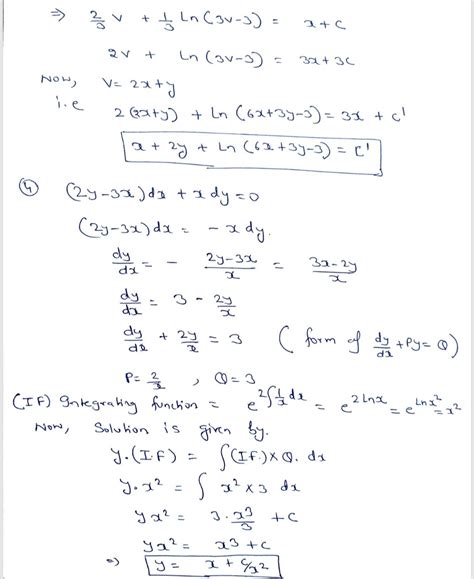 ⇒ 2/3 v + 1/3 Ln(3v-3) = x+c
2v + Ln(3v-3) = 3x+3c
Now, v= 2x+y
i.e 2(2x+y) + Ln(6x+3y-3)= 3x + c'
x + 2y + Ln(6x+3y-3) = c'
④ (2y-3x)dx + x dy=0
(2y-3x)dx = - x dy.
dy/dx = - 2y-3x/x = 3x-2y/x
dy/dx = 3 - 2y/x
dy/dx + 2y/x = 3 ( form of dy/dx +Py= Q)
P= 2/x , Q=3
(IF) Integrating function = e^2∫1/x dx = e^2Lnx = e^Lnx² = x²
Now, Solution is given by.
y.(I.F) = ∫(IF.)×Q. dx
y.x² = ∫ x² × 3 dx
yx² = 3. x³/3 + c
yx² = x³ + c
⇒ y = x + c/x²